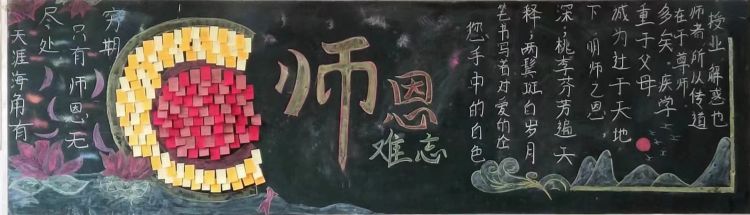 天涯海角有
尽处
只有师恩无
穷期
师恩
难忘
您手中的白色
笔书写着对爱的诠
释;两鬓斑白岁月
深;桃李芬芳遍天
下,明师之恩
诚为过于天地
重于父母
多矣。疾学
在于尊师
师者,所以传道
授业、解惑也